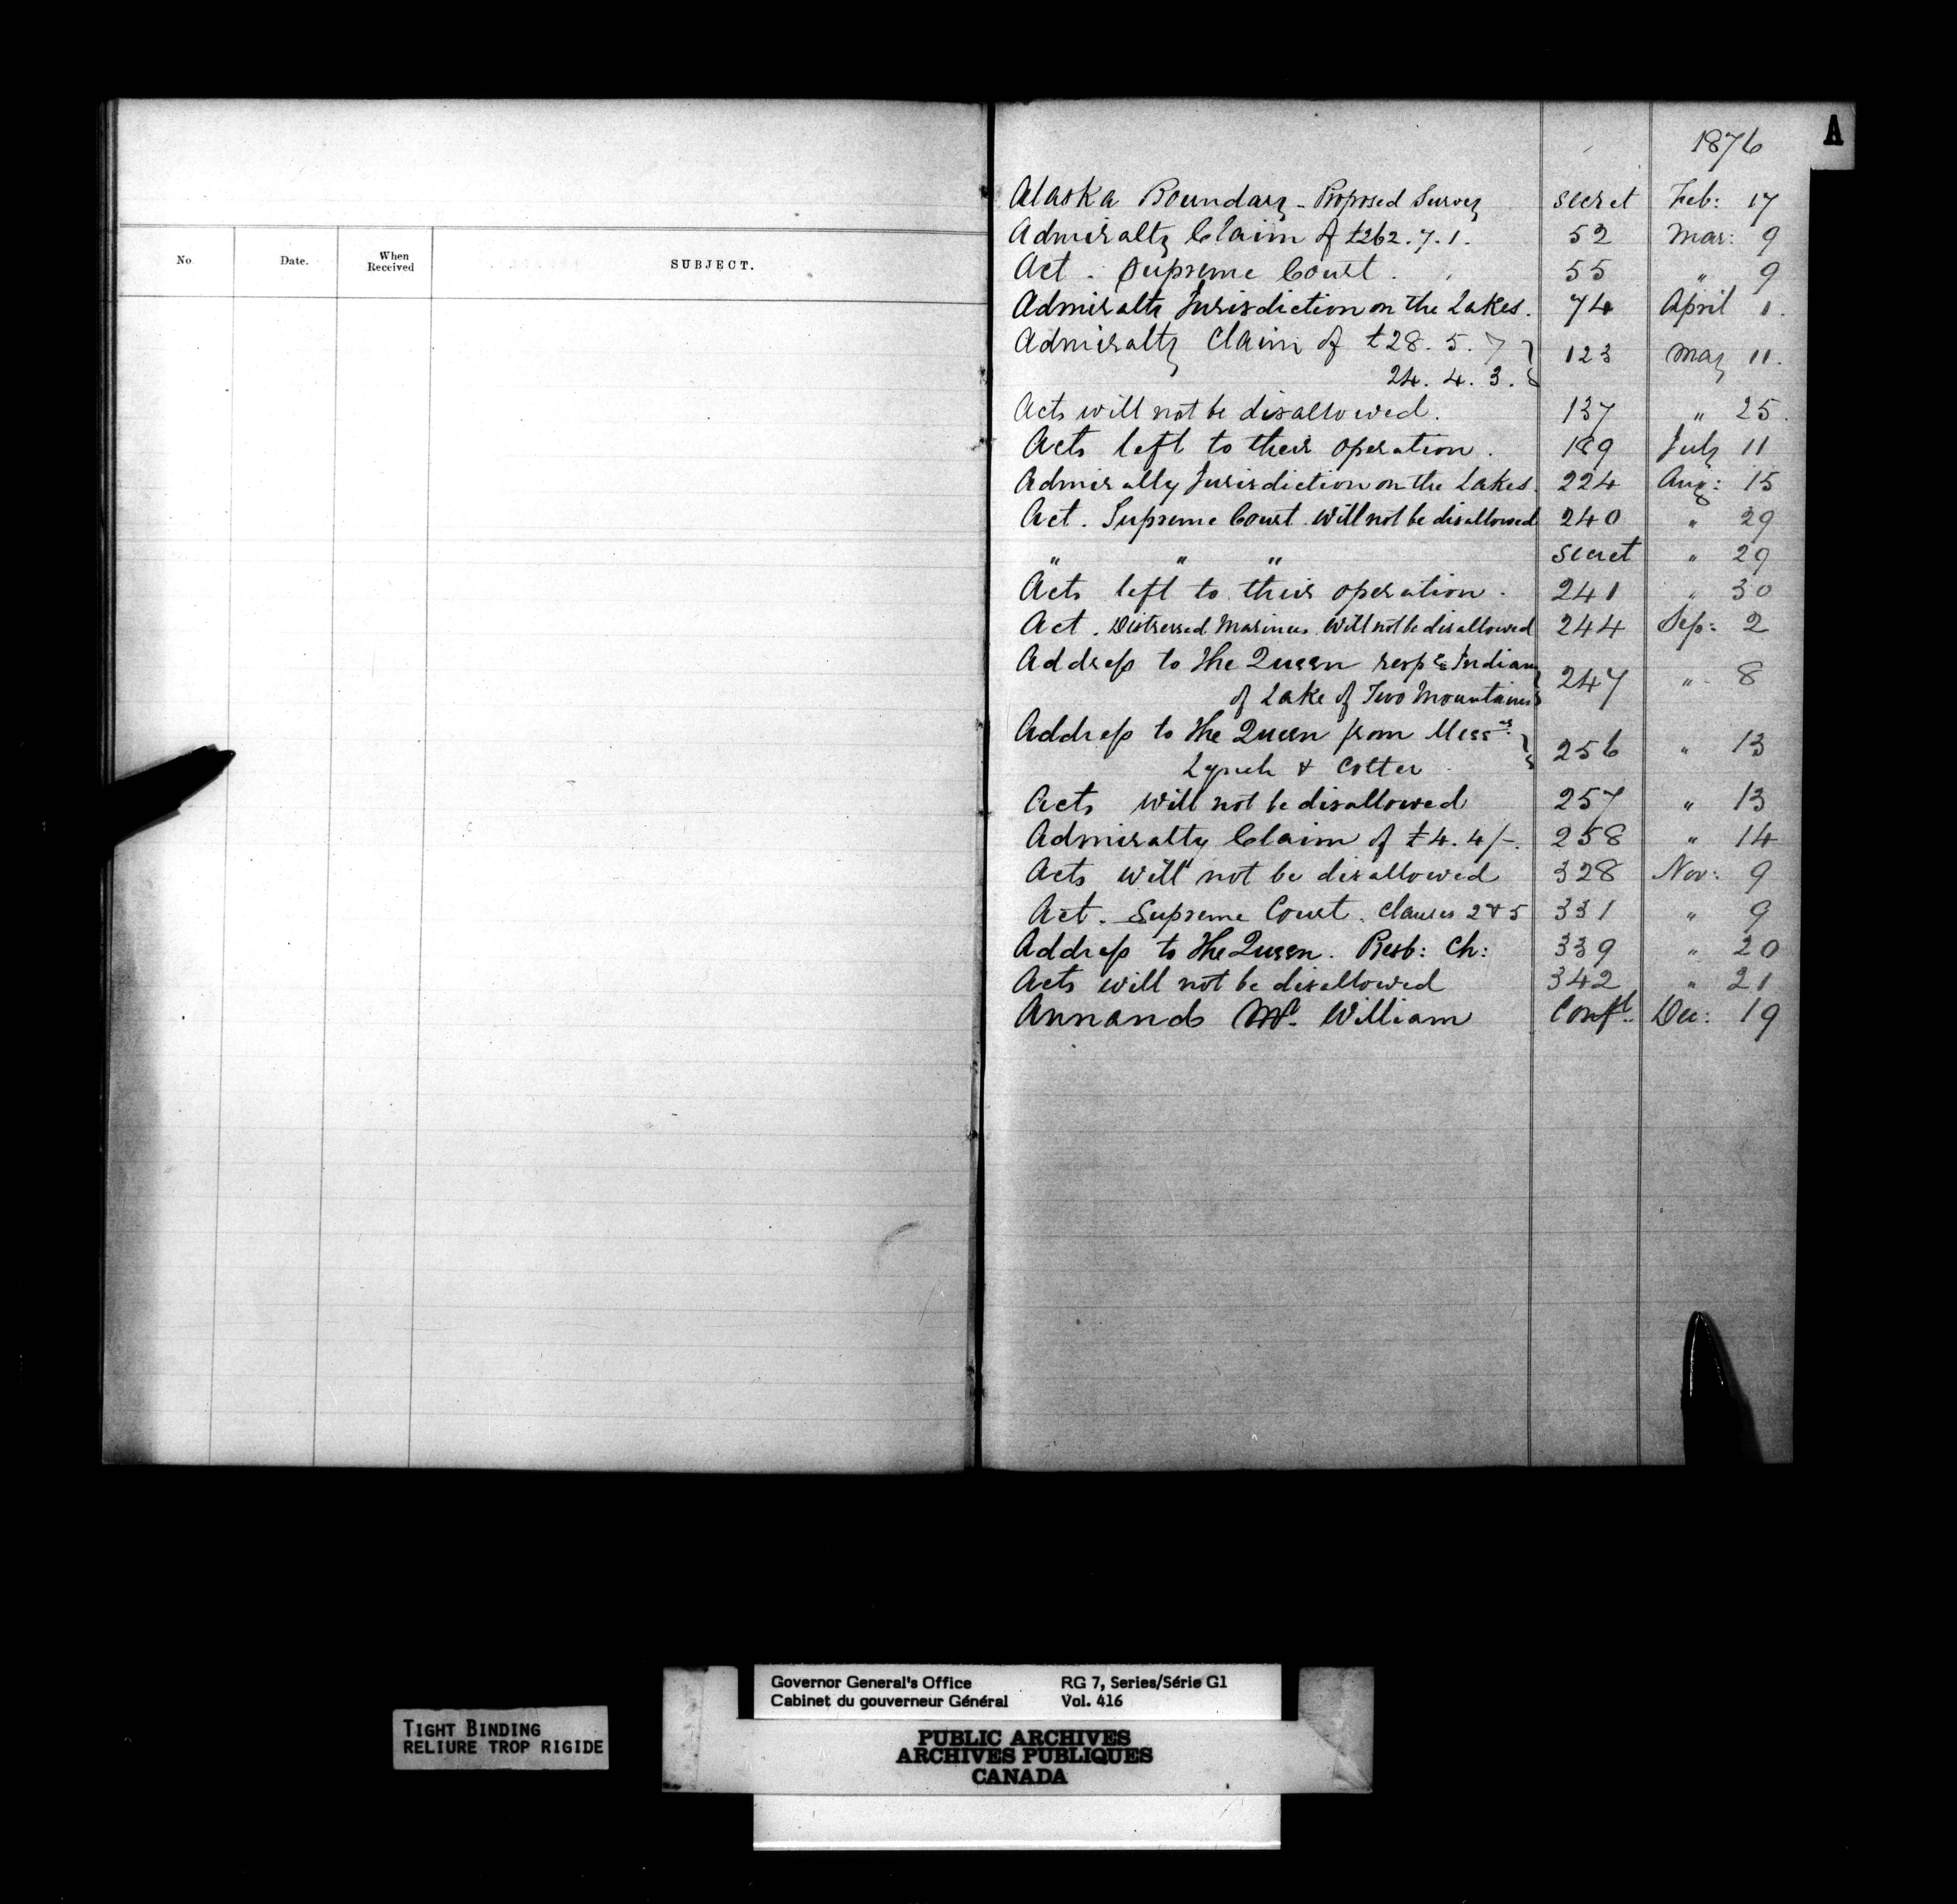 No Date. When Received SUBJECT.
A
1876
Alaska Boundary - Proposed Survey secret Feb: 17
Admiralty Claim of £262.7.1. 52 Mar: 9
Act. Supreme Court. 55 " 9
Admiralty Jurisdiction on the Lakes. 74 April 1.
Admiralty Claim of £28.5.7 } 123 May 11.
24.4.3. }
Acts will not be disallowed. 137 " 25.
Acts left to their operation. 189 July 11
Admiralty Jurisdiction on the Lakes. 224 Aug: 15
Act. Supreme Court. Will not be disallowed 240 " 29
" " " secret " 29
Acts left to their operation. 241 " 30
Act. Distressed Mariners. Will not be disallowed 244 Sep: 2
Address to the Queen resp g Indians } 247 " 8
of Lake of Two Mountains }
Address to the Queen from Messrs. } 256 " 13
Lynch & Cotter }
Acts will not be disallowed 257 " 13
Admiralty Claim of £4.4/-. 258 " 14
Acts will not be disallowed 328 Nov: 9
Act. Supreme Court. Clauses 2 & 5 331 " 9
Address to the Queen. Presb: Ch: 339 " 20
Acts will not be disallowed 342 " 21
Annand Mr. William Confl. Dec: 19
Governor General's Office RG 7, Series/Série G1
Cabinet du gouverneur Général Vol. 416
TIGHT BINDING
RELIURE TROP RIGIDE
PUBLIC ARCHIVES
ARCHIVES PUBLIQUES
CANADA